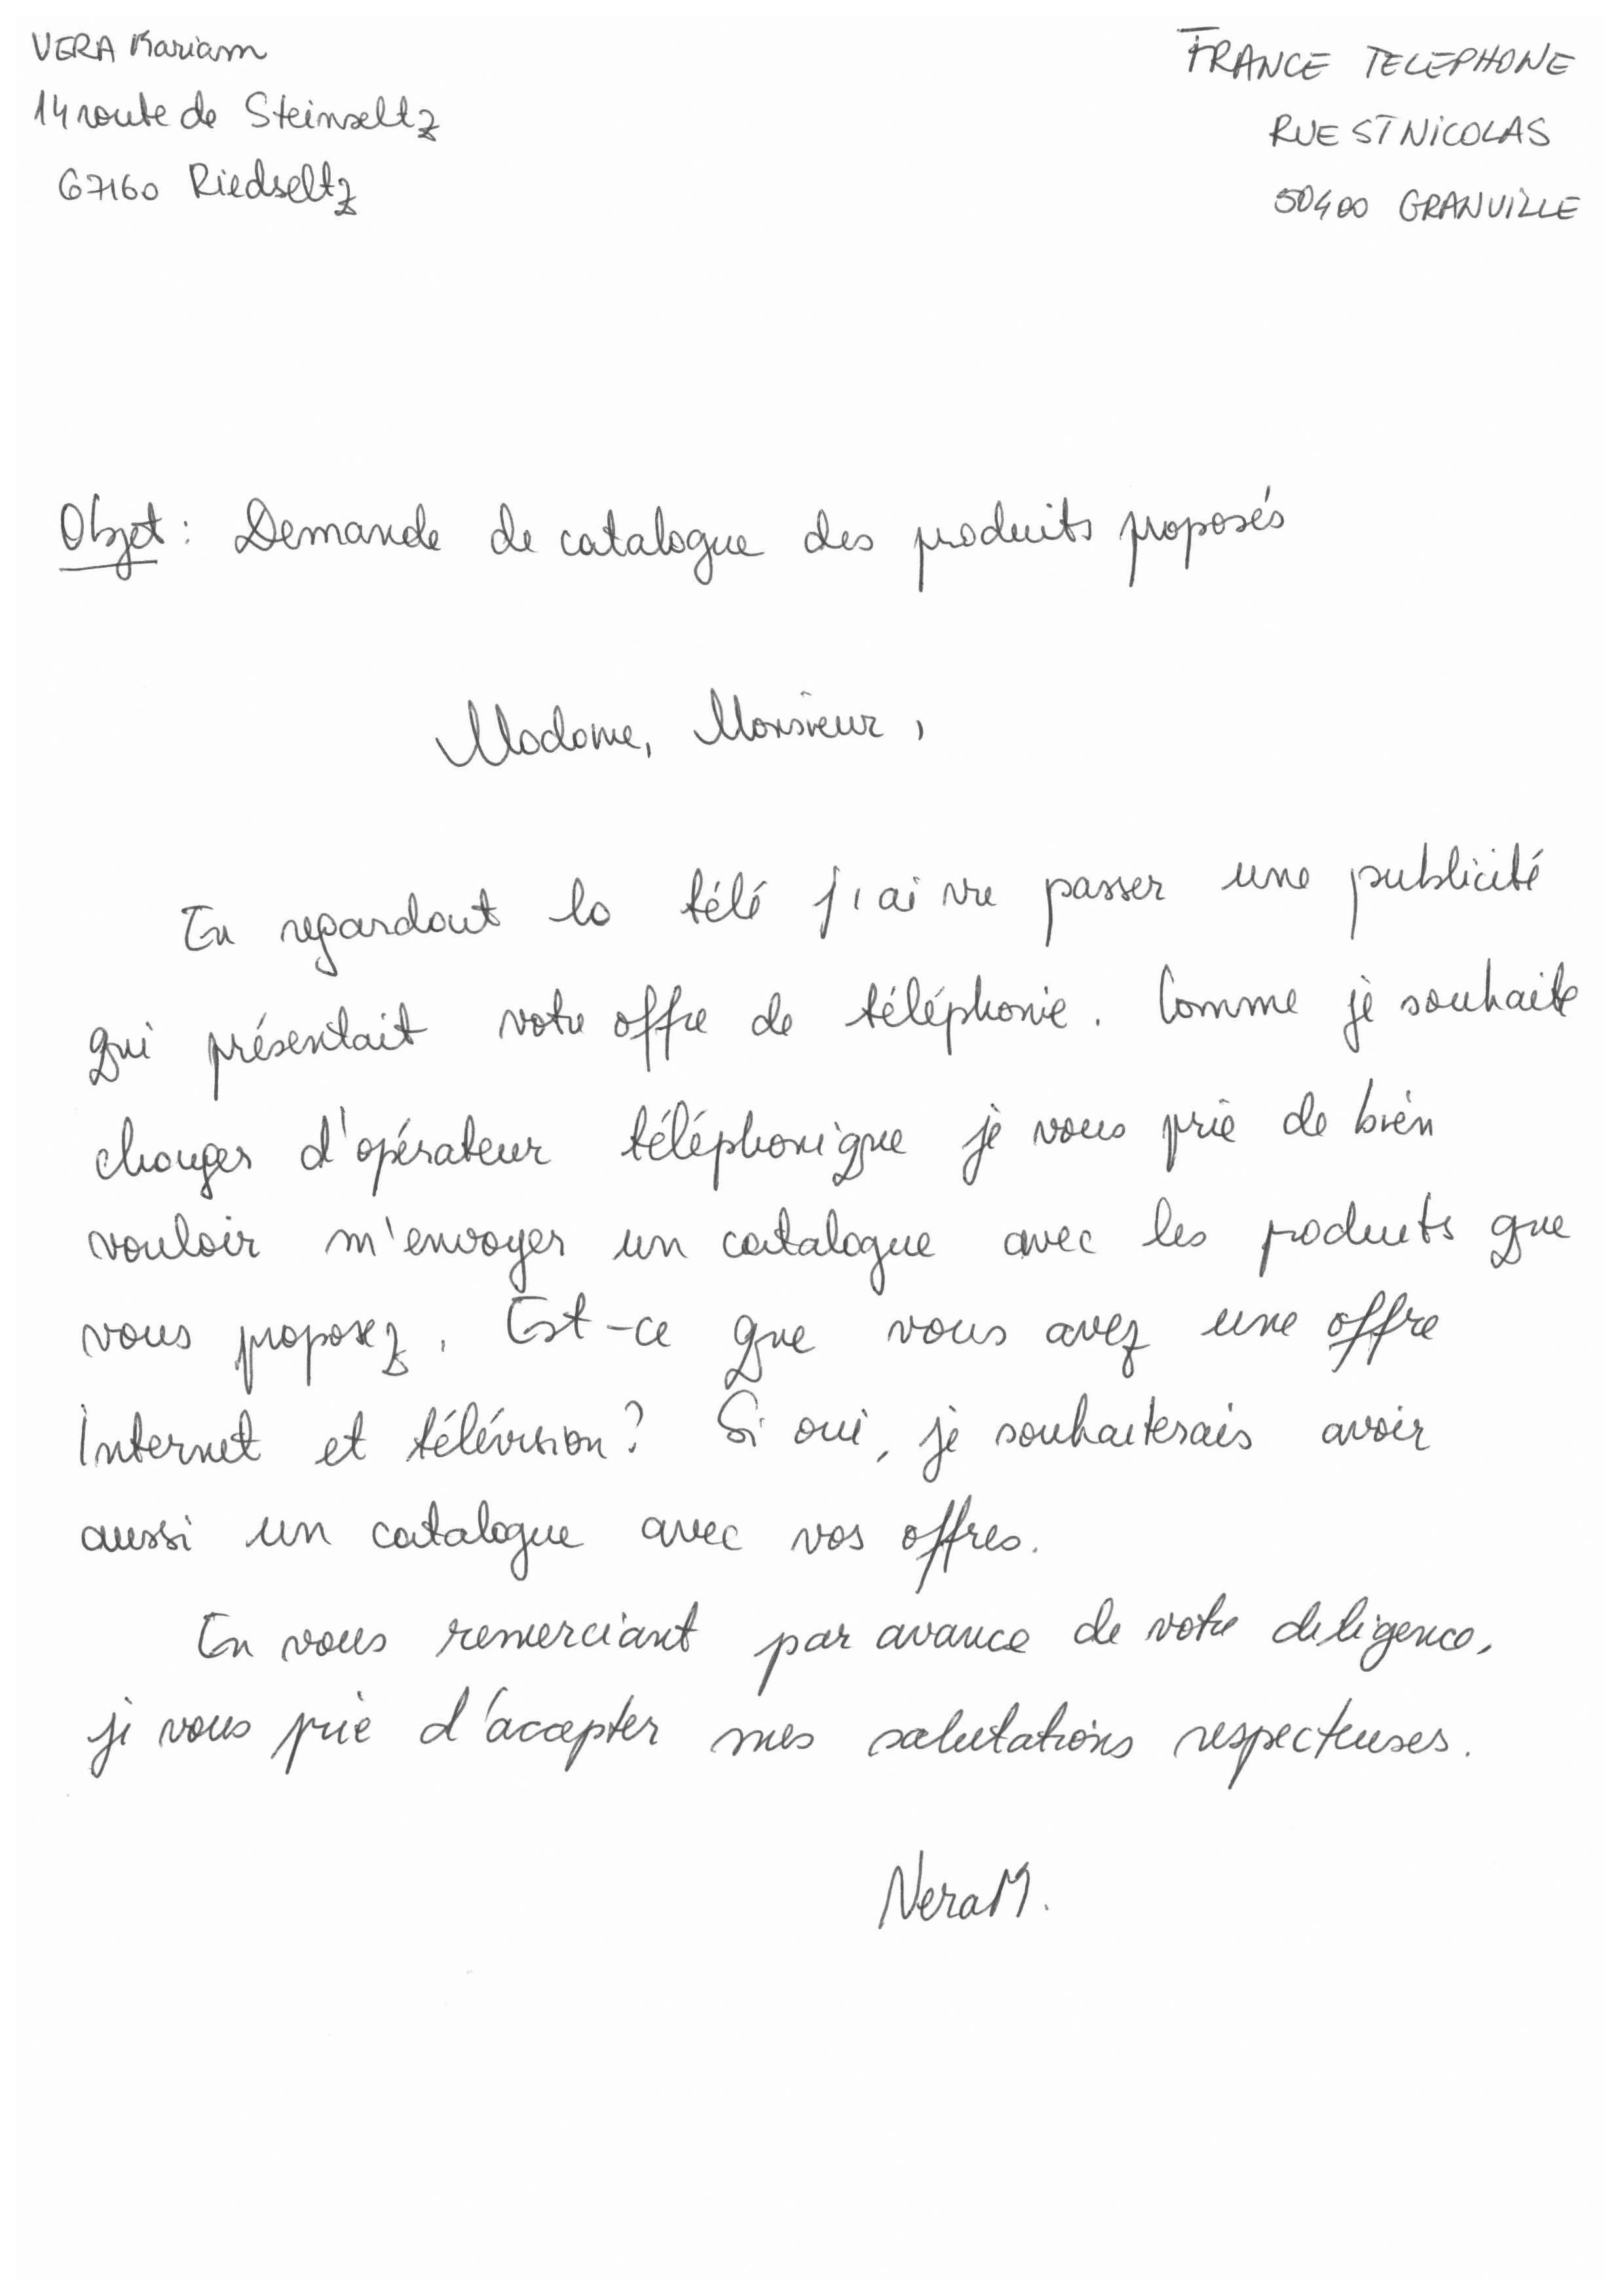 VERA Mariam
14 route de Steinseltz
67160 Riedseltz
FRANCE TELEPHONE
RUE ST NICOLAS
50400 GRANVILLE
Objet : Demande de catalogue des produits proposés
Madame, Monsieur,
En regardant la télé j'ai vu passer une publicité
qui présentait votre offre de téléphonie. Comme je souhaite
changer d'opérateur téléphonique je vous prie de bien
vouloir m'envoyer un catalogue avec les produits que
vous proposez. Est-ce que vous avez une offre
Internet et télévision? Si oui, je souhaiterais avoir
aussi un catalogue avec vos offres.
En vous remerciant par avance de votre diligence,
je vous prie d'accepter mes salutations respectueuses.
Vera M.